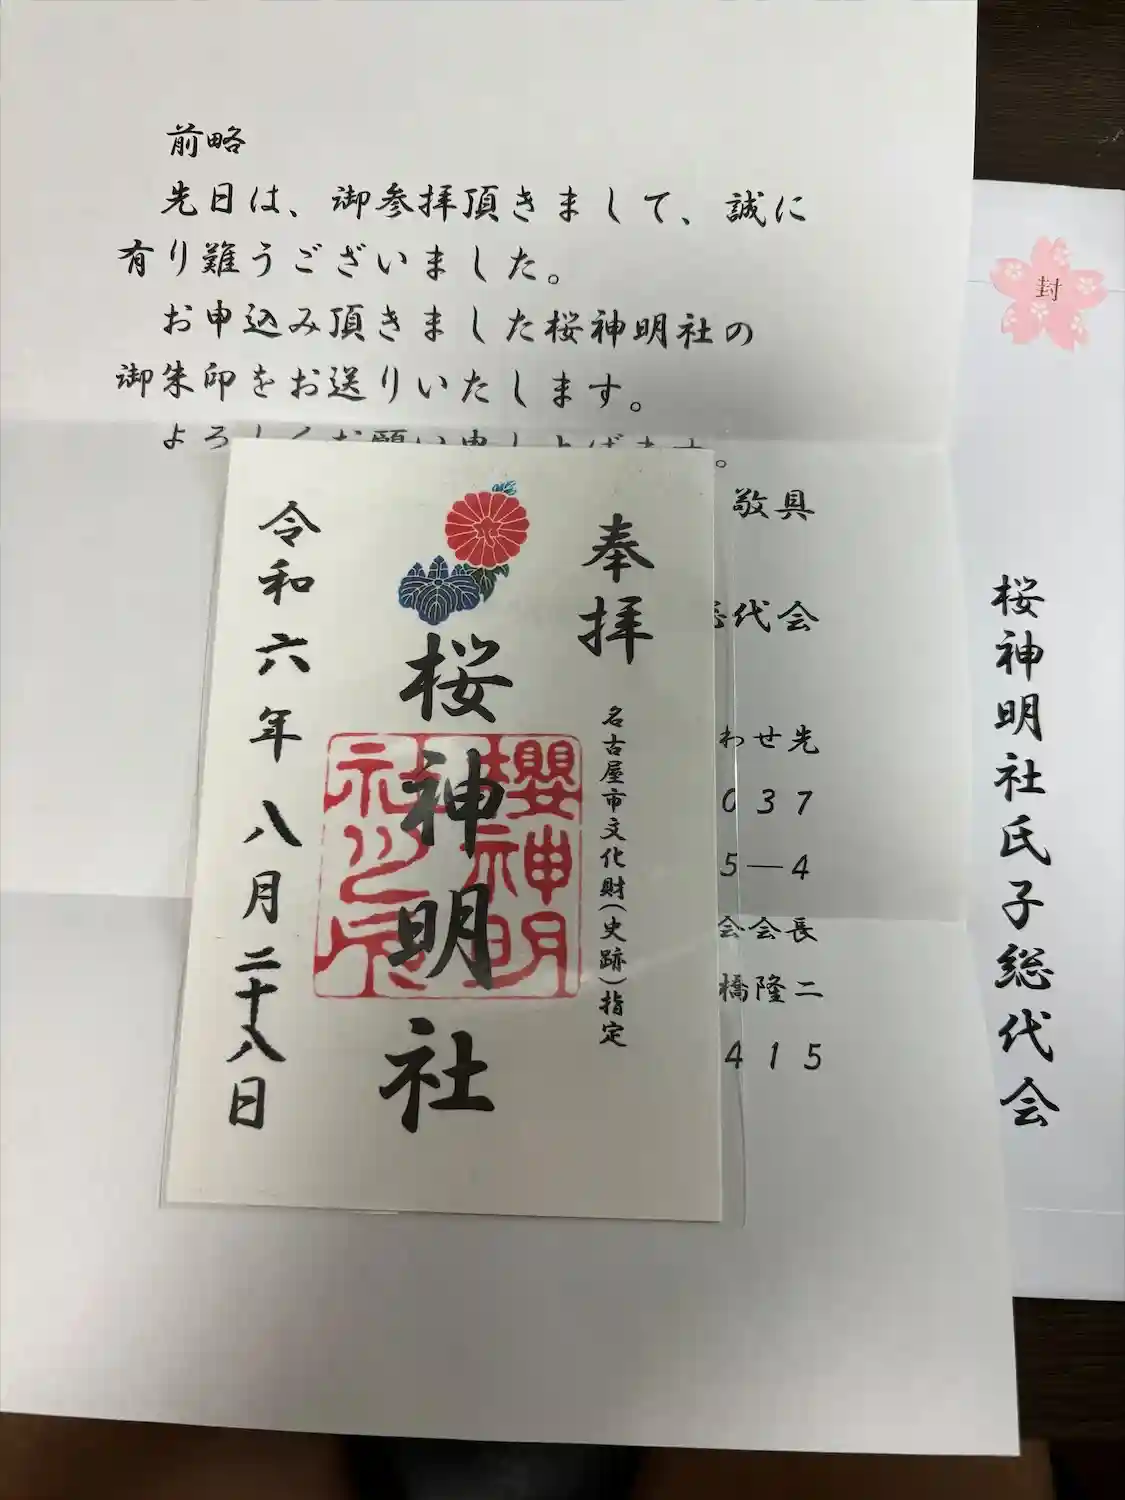 前略
先日は、御参拝頂きまして、誠に
有り難うございました。
お申込み頂きました桜神明社の
御朱印をお送りいたします。
よろしくお願い申し上げます。
敬具
代会
わせ先
037
5―4
会会長
橋隆二
415
奉拝
名古屋市文化財(史跡)指定
桜神明社
櫻神明
社之
令和六年八月二十八日
封
桜神明社氏子総代会